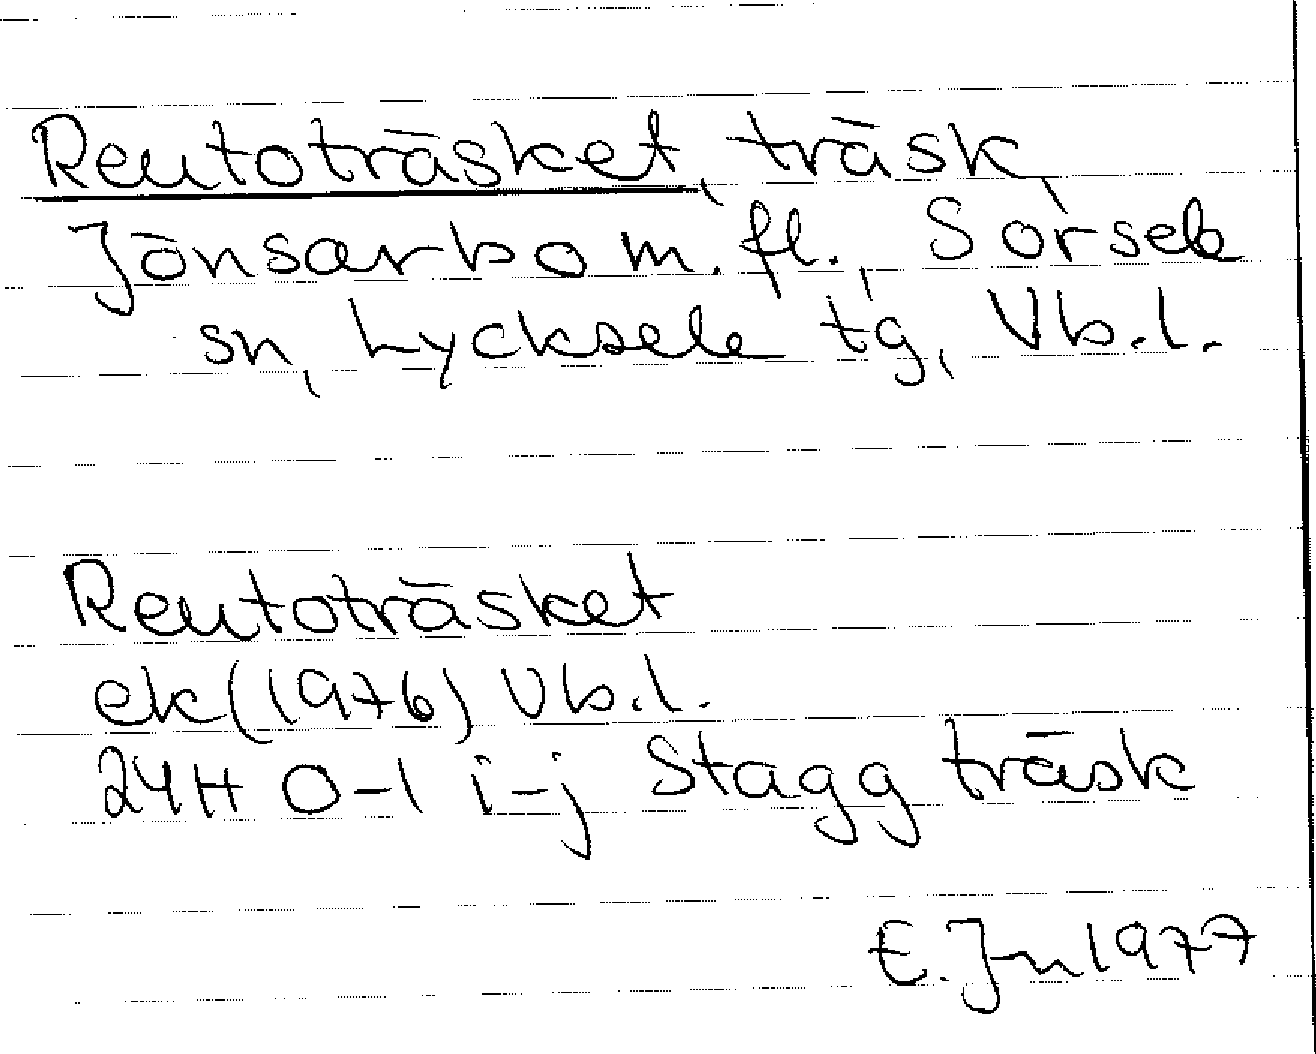 Reutoträsket, träsk,
Jönsarbo m. fl., Sorsele
sn, Lycksele tg, Vb.l.
Reutoträsket
ek (1976) Vb.l.
24H 0-1 i-j Staggträsk
E. Jn 1977